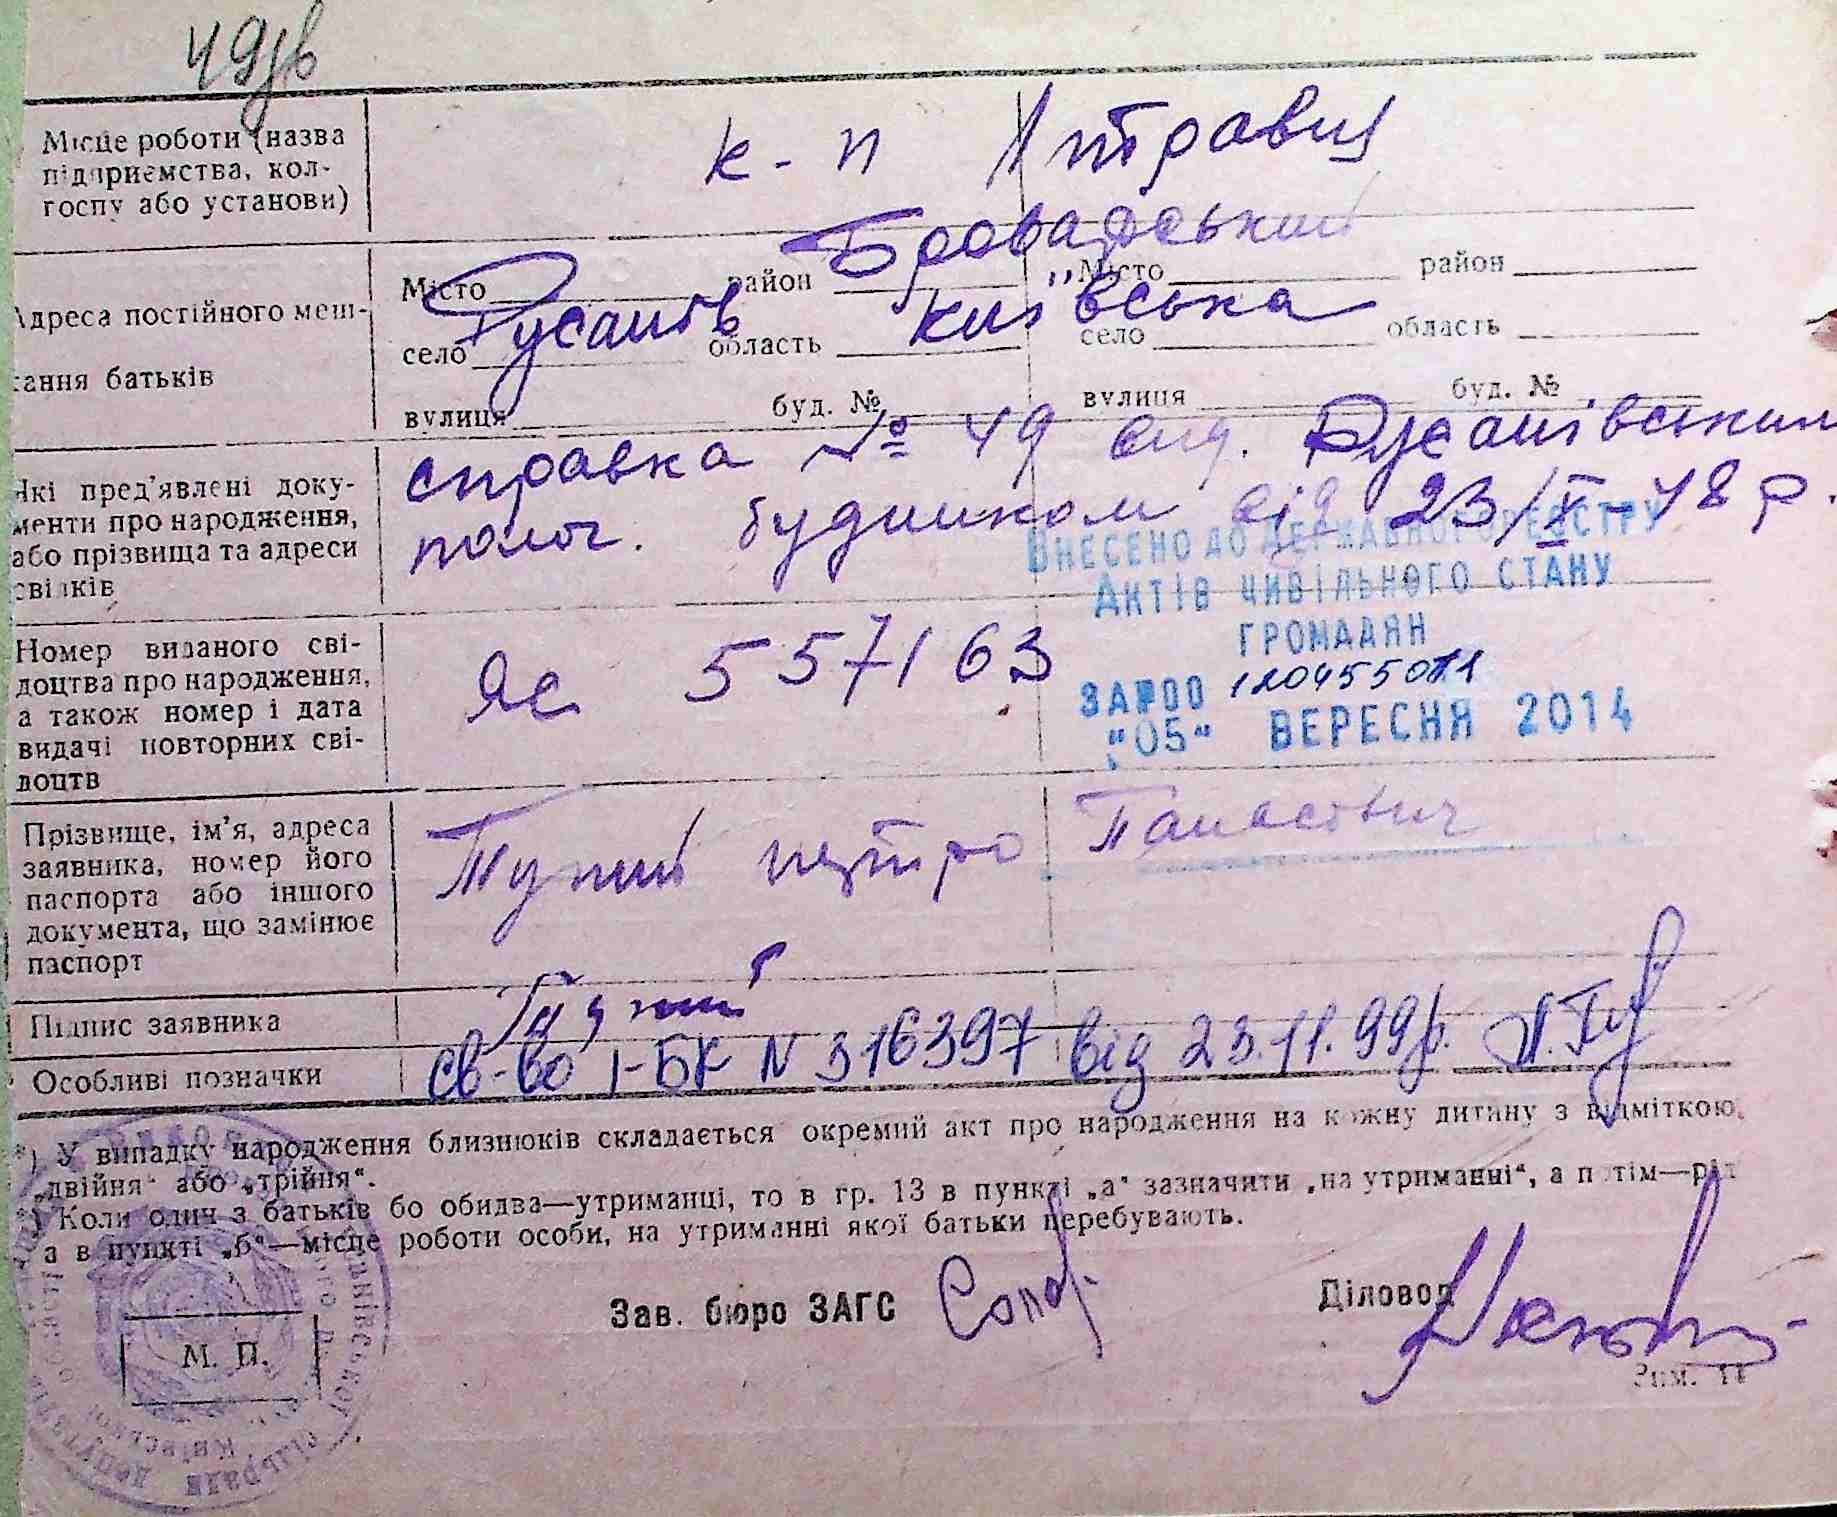 Місце роботи (назва
підприємства, кол-
госпу або установи)
к-п Правц
Адреса постійного меш-
кання батьків
Місто район Броварський Місто район
село Русанів область Київська село область
вулиця буд. № вулиця буд. №
Які пред'явлені доку-
менти про народження,
або прізвища та адреси
свідків
справка № 49 вид. Русанівським
полог. будинком від 23/X-48 р.
ВНЕСЕНО ДО ДЕРЖАВНОГО РЕЄСТРУ
АКТІВ ЦИВІЛЬНОГО СТАНУ
ГРОМАДЯН
"05" ВЕРЕСНЯ 2014
Номер виданого сві-
доцтва про народження,
а також номер і дата
видачі повторних сві-
доцтв
ЯС 557163
Прізвище, ім'я, адреса
заявника, номер його
паспорта або іншого
документа, що замінює
паспорт
Тупий Петро Панасович
Підпис заявника
Тупий
Особливі позначки
св-во I-БК N 316397 від 23.11.99р.
*) У випадку народження близнюків складається окремий акт про народження на кожну дитину з відміткою
„двійня" або „трійня".
*) Коли один з батьків бо обидва—утриманці, то в гр. 13 в пункті „а" зазначити „на утриманні", а потім—рід
а в пункті „б"—місце роботи особи, на утриманні якої батьки перебувають.
Зав. бюро ЗАГС
Діловод
М. П.
Зам. 11